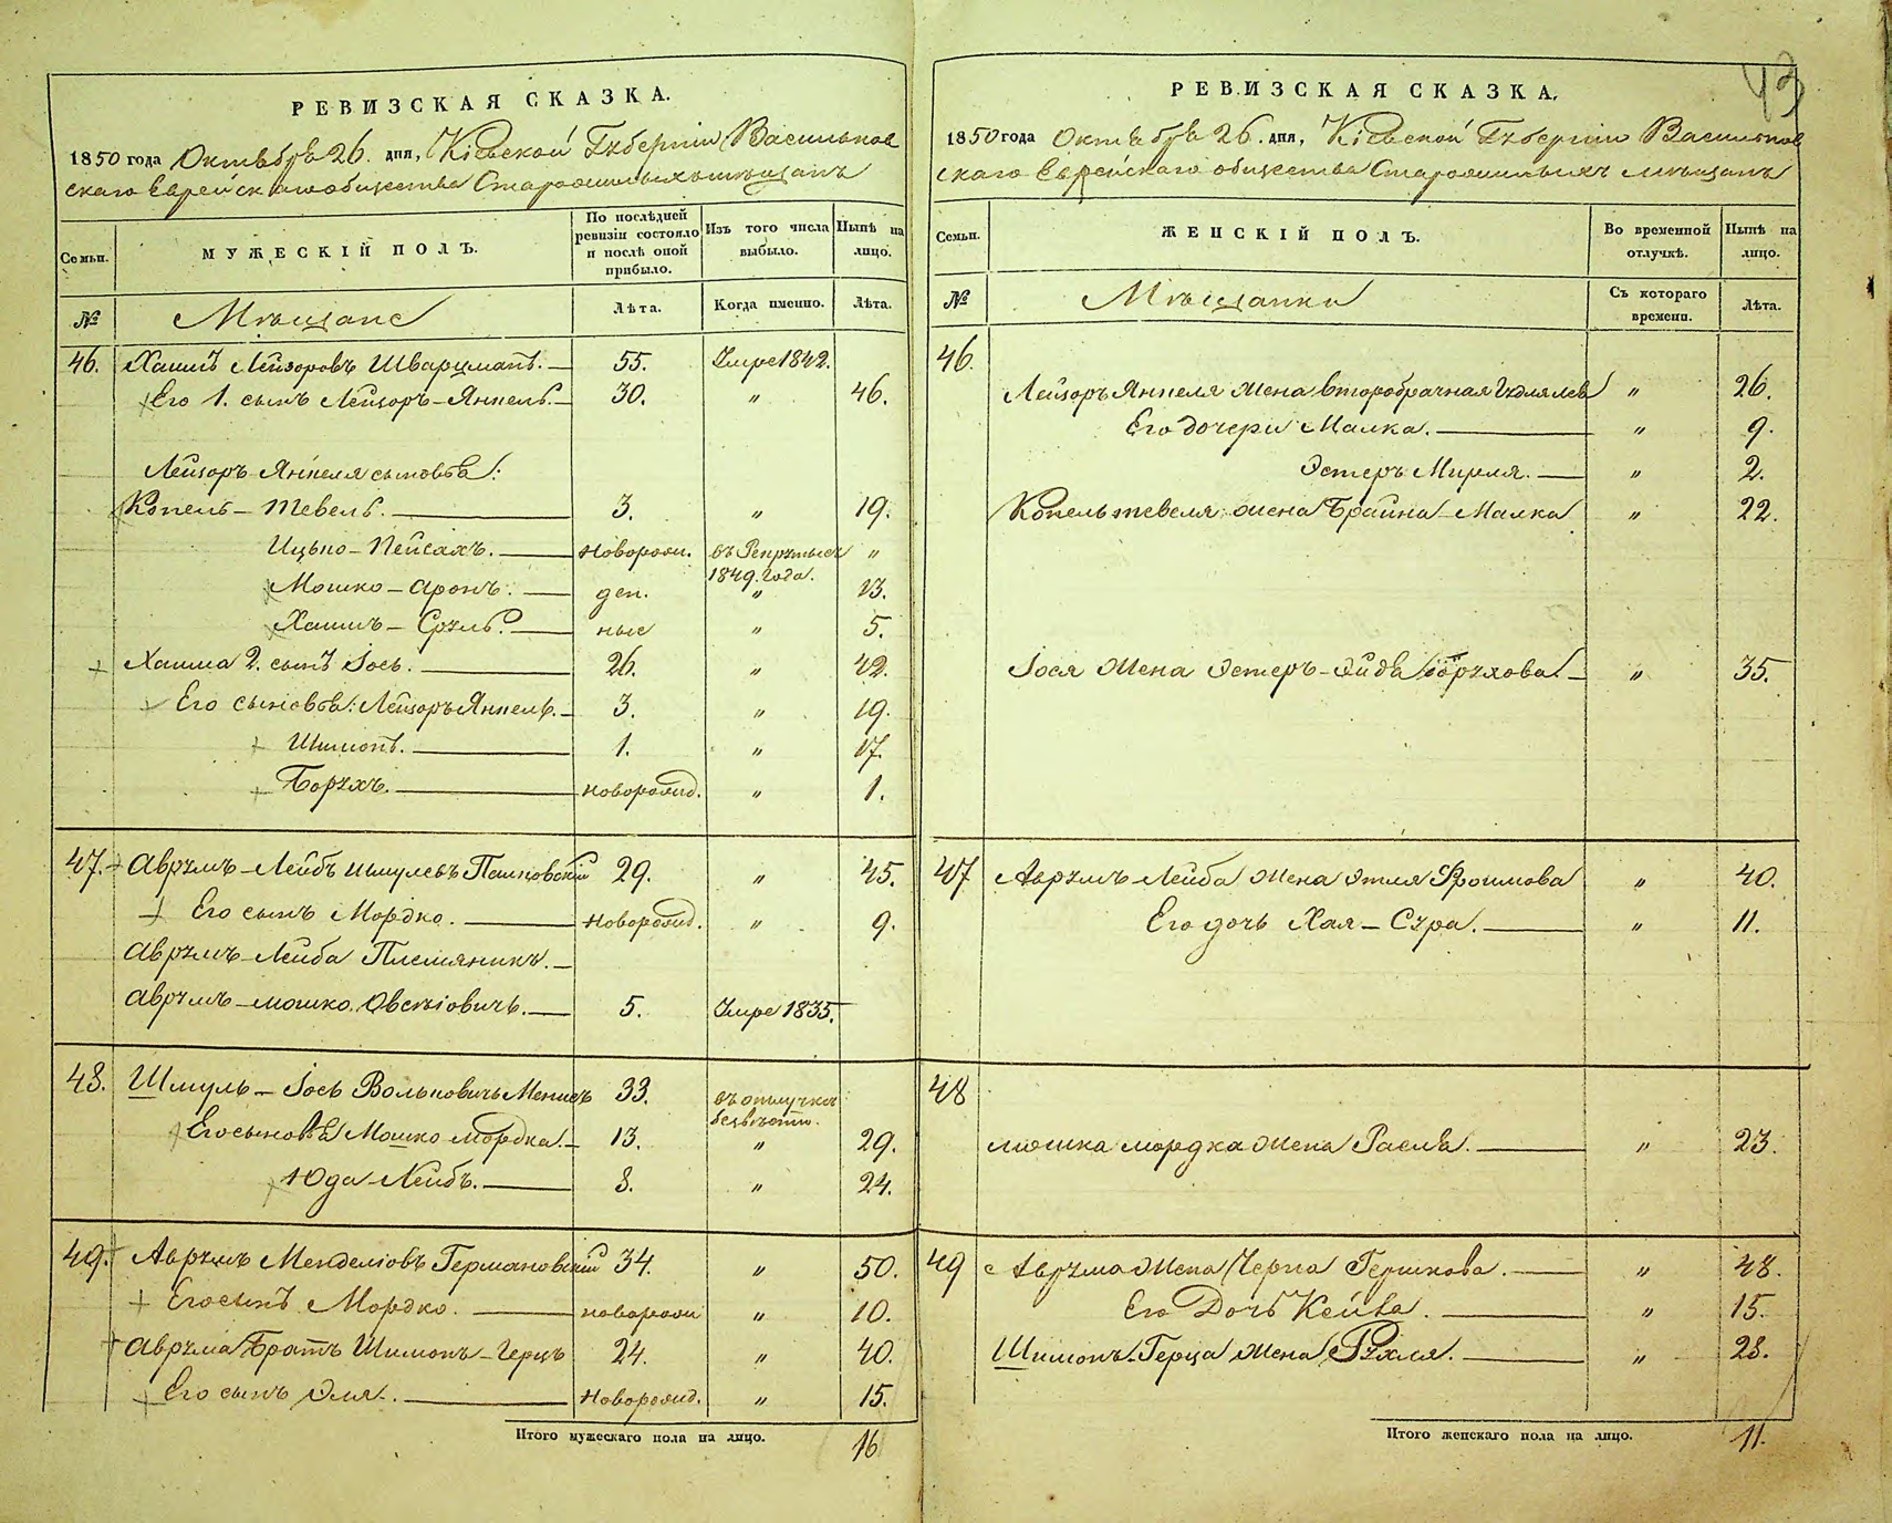 43
РЕВИЗСКАЯ СКАЗКА.
1850 года Октября 26. дня, Кіевской Губерніи Васильков
скаго Еврейскаго общества Старожилыхъ мѣщанъ
Семьи.
МУЖЕСКІЙ ПОЛЪ.
По послѣдней ревизіи состояло и послѣ оной прибыло.
Изъ того числа выбыло.
Нынѣ на лицо.
№
Мѣщане
Лѣта.
Когда именно.
Лѣта.
46. Хаимъ Лейзоровъ Шварцманъ. — 55. Умре 1842.
Его 1. сынъ Лейзоръ-Янкель. — 30. " 46.
Лейзоръ-Янкеля сыновья:
Копель-Тевель. — 3. " 19.
Ицько-Пейсахъ. — новорожд. въ Рекрутыхъ "
1849. года.
Мошко-Аронъ. — ден. " 13.
Хаимъ-Сруль. — ные " 5.
Хаима 2. сынъ Іось. — 26. " 42.
Его сыновья: Лейзоръ Янкель. — 3. " 19.
Шимонъ. — 1. " 17.
Борухъ. — новорожд. " 1.
47. Аврумъ-Лейбъ Шмулевъ 29. " 45.
Его сынъ Мордко. — новорожд. " 9.
Аврумъ-Лейба Племянникъ. —
Аврумъ-Мошко Овсѣіовичъ. — 5. Умре 1835.
48. Шмуль-Іось Вольковичъ 33. въ отлучкѣ
безвѣстно.
Его сыновья Мошко Мордка. — 13. " 29.
Юда-Лейбъ. — 8. " 24.
49. Аврумъ Менделіовъ Германовскій 34. " 50.
Его сынъ Мордко. — новорожд " 10.
Аврума Братъ Шимонъ-Герцъ 24. " 40.
Его сынъ Эля. — новорожд. " 15.
Итого мужескаго пола на лицо. 16
РЕВИЗСКАЯ СКАЗКА.
1850 года Октября 26. дня, Кіевской Губерніи Васильков
скаго Еврейскаго общества Старожилыхъ мѣщанъ
Семьи.
ЖЕНСКІЙ ПОЛЪ.
Во временной отлучкѣ.
Нынѣ на лицо.
№
Мѣщанки
Съ котораго времени.
Лѣта.
46.
Лейзоръ Янкеля жена второбрачная " 26.
Его дочери Малка. — " 9.
Эстеръ Мирля. — " 2.
Копель тевеля жена Брайна-Малка " 22.
Іося жена Эстеръ-Эйдя Борухова. — " 35.
47 Аврумъ-Лейба жена Этля Фроимова " 40.
Его дочь Хая-Сура. — " 11.
48
Мошка мордка жена Расля. — " 23.
49 Аврума жена Черна Гершкова. — " 48.
Его Дочь Кейла. — " 15.
Шимонъ-Герца жена Рухля. — " 28.
Итого женскаго пола на лицо. 11.